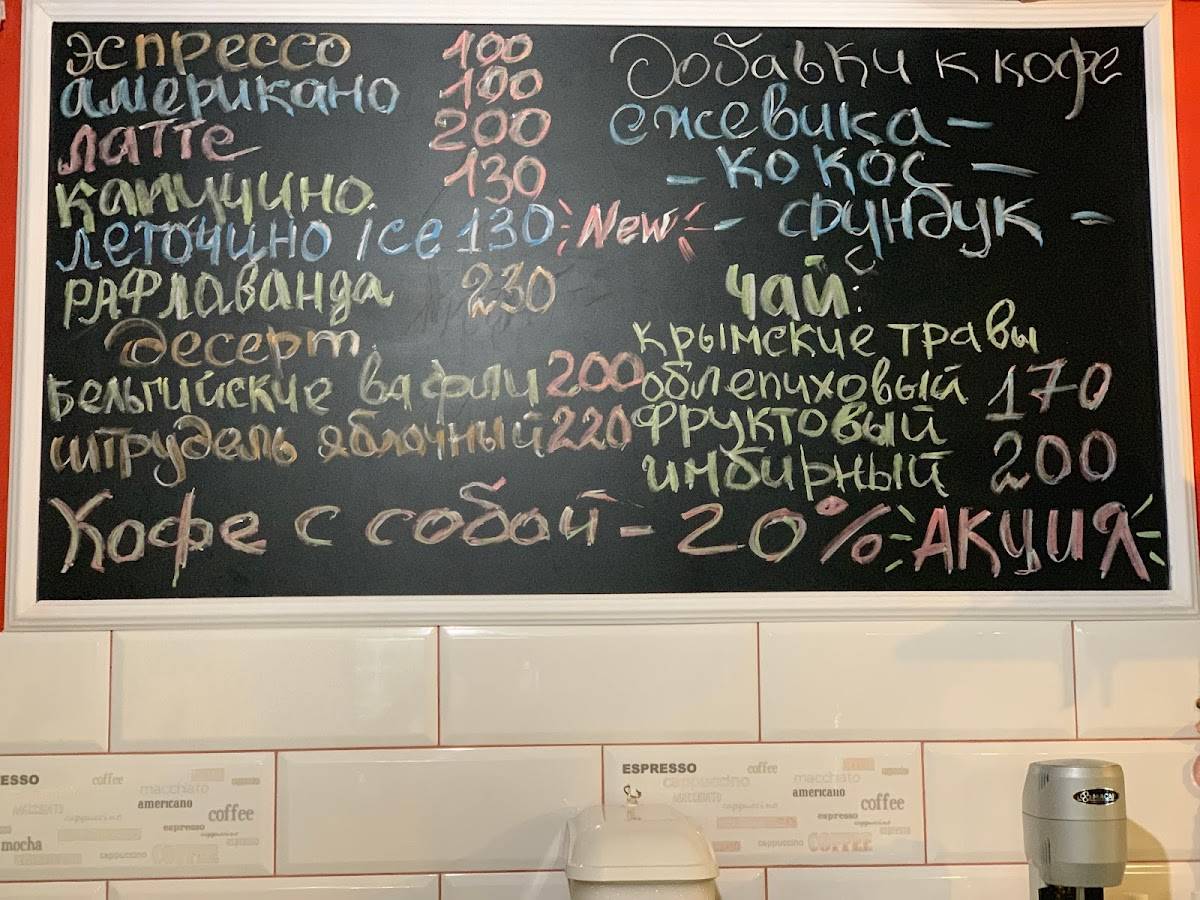 эспрессо 100
американо 100
латте 200
капучино 130
леточино ice 130 New
раф лаванда 230
десерт
Бельгийские вафли 200
штрудель яблочный 220
Добавки к кофе
ежевика -
- кокос -
- фундук -
чай:
крымские травы
облепиховый 170
фруктовый
имбирный 200
Кофе с собой - 20% АКЦИЯ
ESSO
coffee
macchiato
MACCHIATO
americano
coffee
cappuccino
espresso
cappuccino
mocha
cappuccino
COFFEE
ESPRESSO
coffee
cappuccino
macchiato
MACCHIATO
americano
coffee
cappuccino
espresso
cappuccino
cappuccino
COFFEE